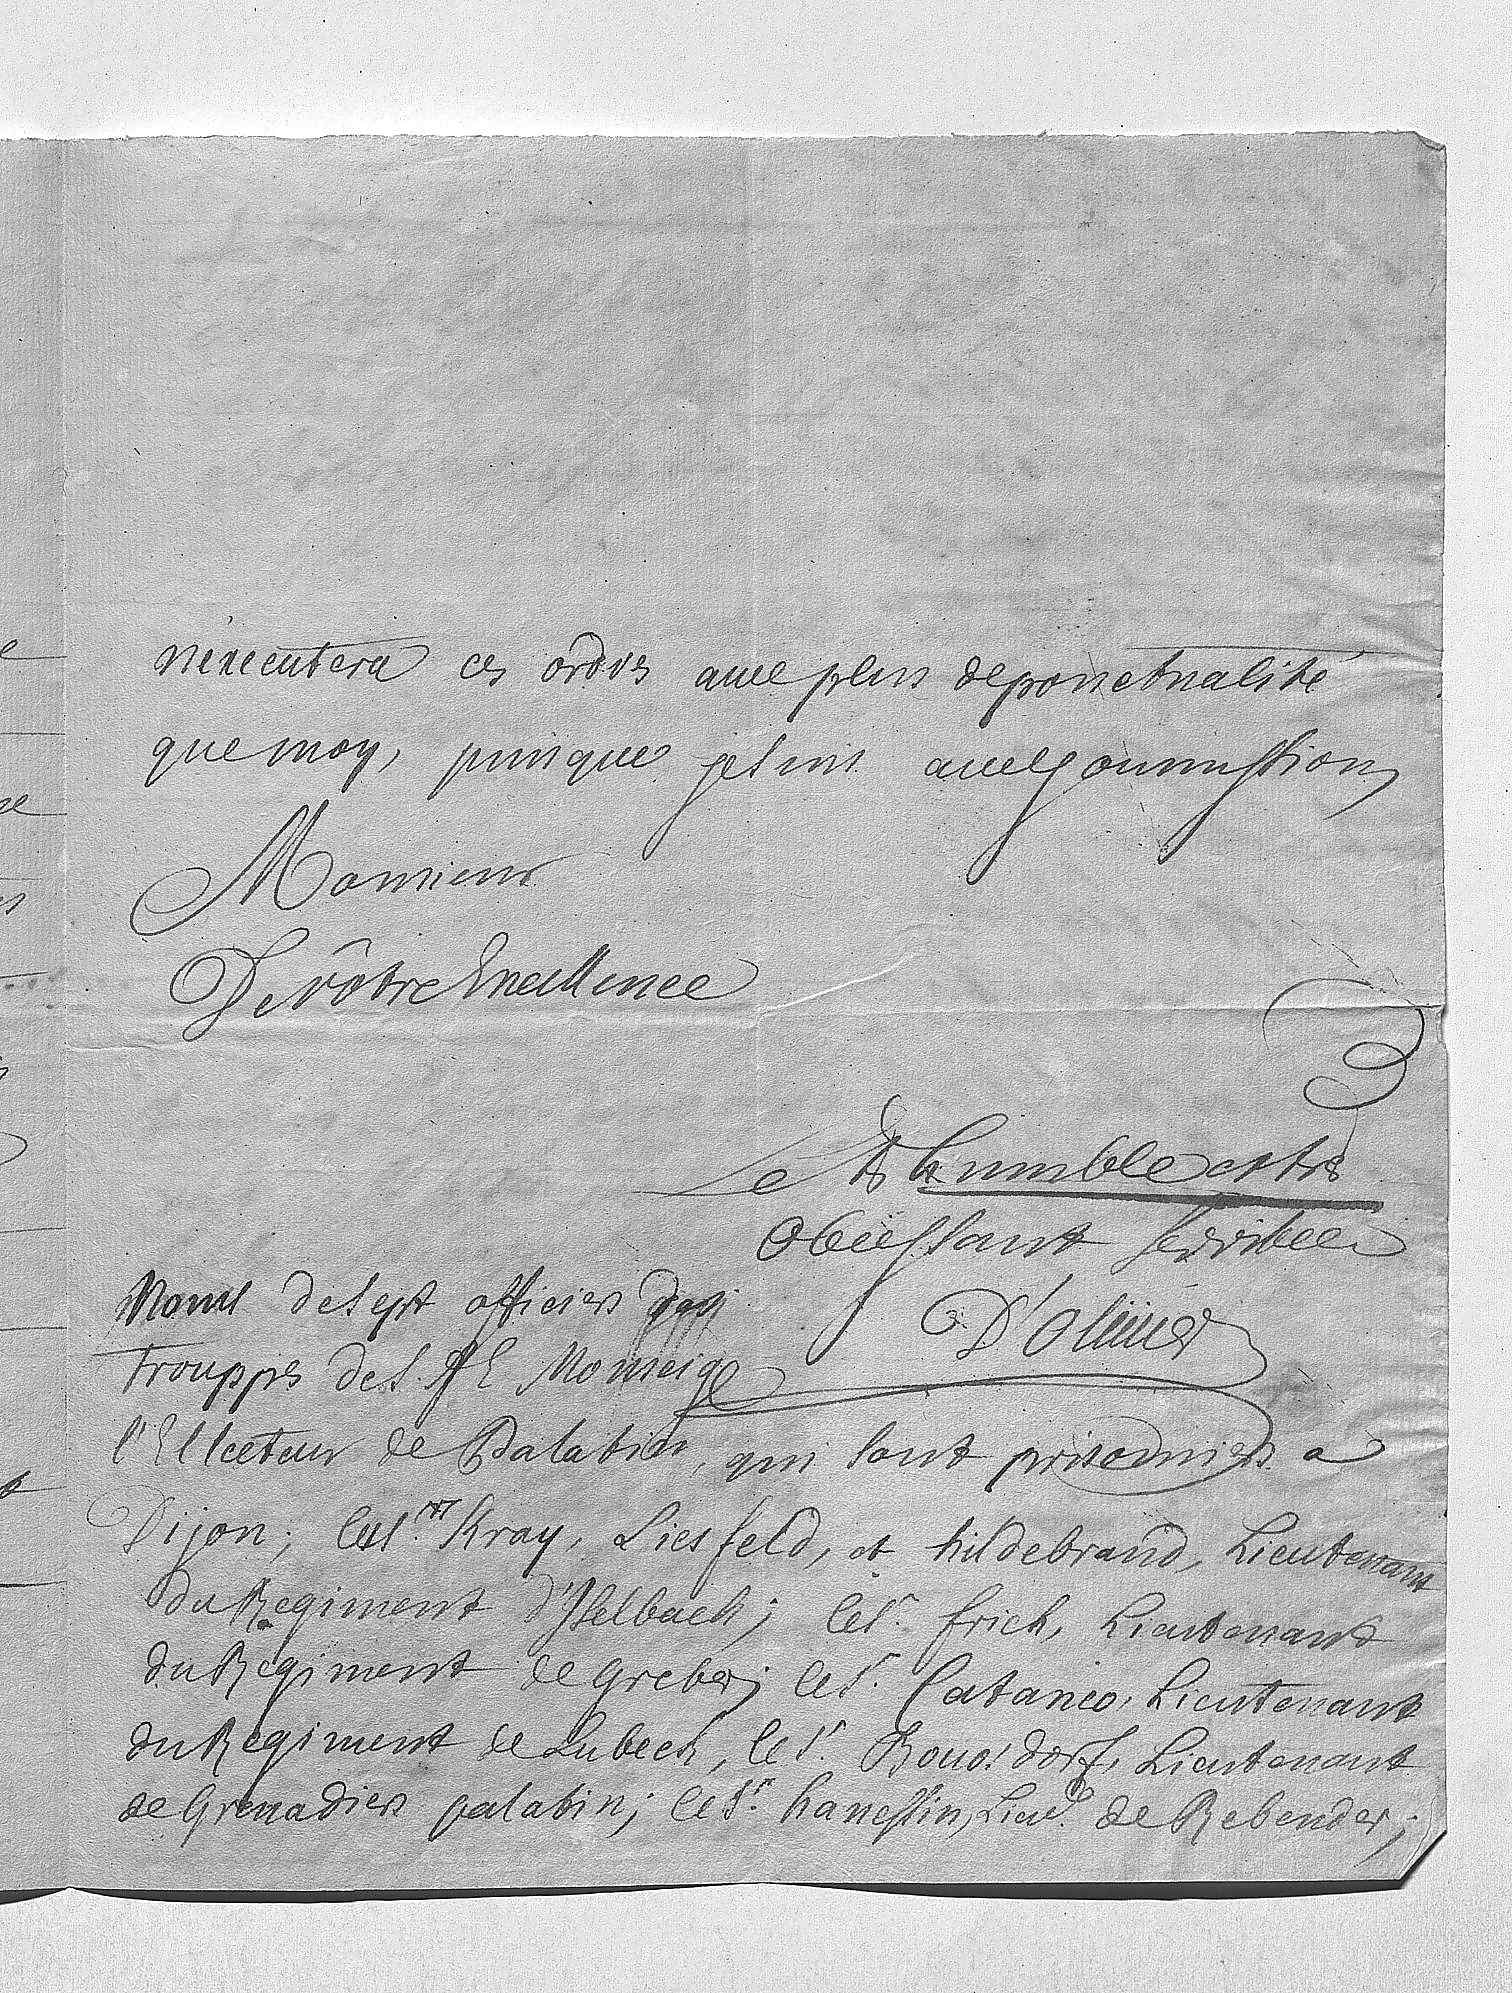 n'executera ces ordres avec plus de ponctualité
que moy, puisque je suis avec soumission
Monsieur
De vôtre Excellence
Le trs humble et trs
obeissant serviteur
D'olivier
Noms de sept officiers des
trouppes de S. A E Monseigr
l'Ellecteur de Palatin, qui sont prisonniers a
Dijon; les srs Kray, Liesfeld, et hildebrand, Lieutenant
du Regiment d'Iselbach; le sr. frich, Lieutenant
du Regiment de greber; le sr. Cataneo, Lieutenant
du Regiment de Lubeck, le sr. Lieutenant
de Grenadiers palatin; le sr. hanessin, Lieut. de Rebender;